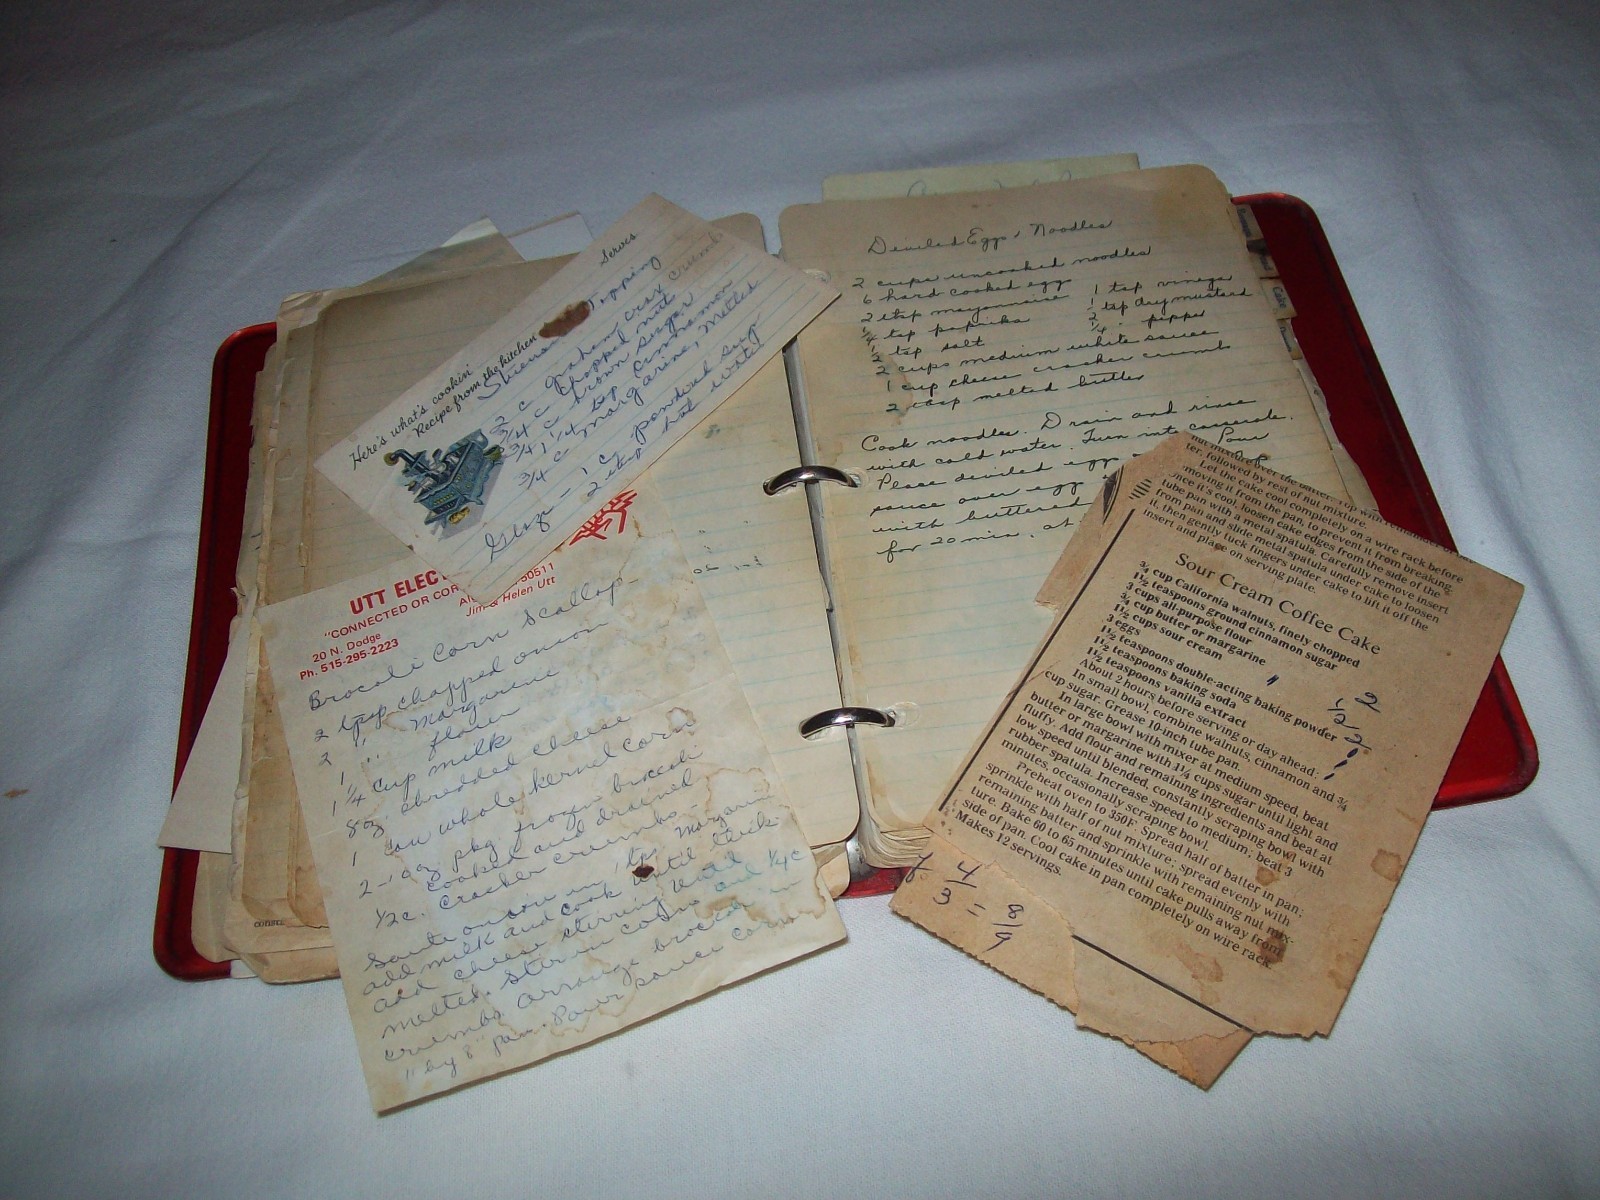 Here's what's cookin'
Serves
Recipe from the kitchen
Topping
2 c graham crax crumb
3/4 c chopped nut
3/4 c brown sugar
1 1/4 tsp cinnamon
3/4 c margarine, melted
Glaze = 1 c powdered sug
2 tbsp hot water
UTT ELECT
"CONNECTED OR COR
20 N. Dodge
Ph. 515-295-2223
50511
Jim & Helen Utt
Brocoli Corn Scallop
2 tbsp chopped onion
2 " margarine
1 " flour
1 1/4 cup milk
8 oz. shredded cheese
1 can whole kernel corn
pkg frozen brocoli
cooked and drained
1/2 c. cracker crumbs
Saute onion in 1 tbsp margarine
add milk and cook until thick
add cheese stirring until
melted. Stir in corn and 1/4 c
crumbs. Arrange brocoli in
" by 8" pan. Pour sauce
Deviled Eggs & Noodles
2 cups uncooked noodles
6 hard cooked egg
2 tbsp mayonnaise
1 tsp vinegar
tsp paprika
1/2 tsp dry mustard
tsp salt
1/4 " pepper
2 cups medium white sauce
1 cup cheese cracker crumb
2 tbsp melted butter
Cook noodles. Drain and rinse
with cold water. Turn into casserole.
Place deviled egg
Pour
sauce over egg
with buttered
for 20 min. at
Cake
nut mixture over the batter. Top with remainder of
ter, followed by rest of nut mixture.
Let the cake cool completely on a wire rack before
moving it from the pan, to prevent it from breaking.
Once it's cool, loosen cake edges from the side of the
tube pan with a metal spatula. Carefully remove insert
from pan and slide metal spatula under cake to loosen
it, then gently tuck fingers under cake to lift it off the
insert and place on serving plate.
Sour Cream Coffee Cake
3/4 cup California walnuts, finely chopped
1 1/2 teaspoons ground cinnamon sugar
3 cups all-purpose flour
3/4 cup butter or margarine
1 1/2 cups sour cream
3 eggs
1 1/2 teaspoons double-acting baking powder
1 1/2 teaspoons baking soda
1 1/2 teaspoons vanilla extract
2
1/2
2
1
1
1
About 2 hours before serving or day ahead:
In small bowl, combine walnuts, cinnamon and 3/4
cup sugar. Grease 10-inch tube pan.
In large bowl with mixer at medium speed, beat
butter or margarine with 1 1/4 cups sugar until light and
fluffy. Add flour and remaining ingredients and beat at
low speed until blended, constantly scraping bowl with
rubber spatula. Increase speed to medium; beat 3
minutes, occasionally scraping bowl.
Preheat oven to 350F. Spread half of batter in pan;
sprinkle with half of nut mixture; spread evenly with
remaining batter and sprinkle with remaining nut mix-
ture. Bake 60 to 65 minutes until cake pulls away from
side of pan. Cool cake in pan completely on wire rack.
Makes 12 servings.
4/3 = 8/9